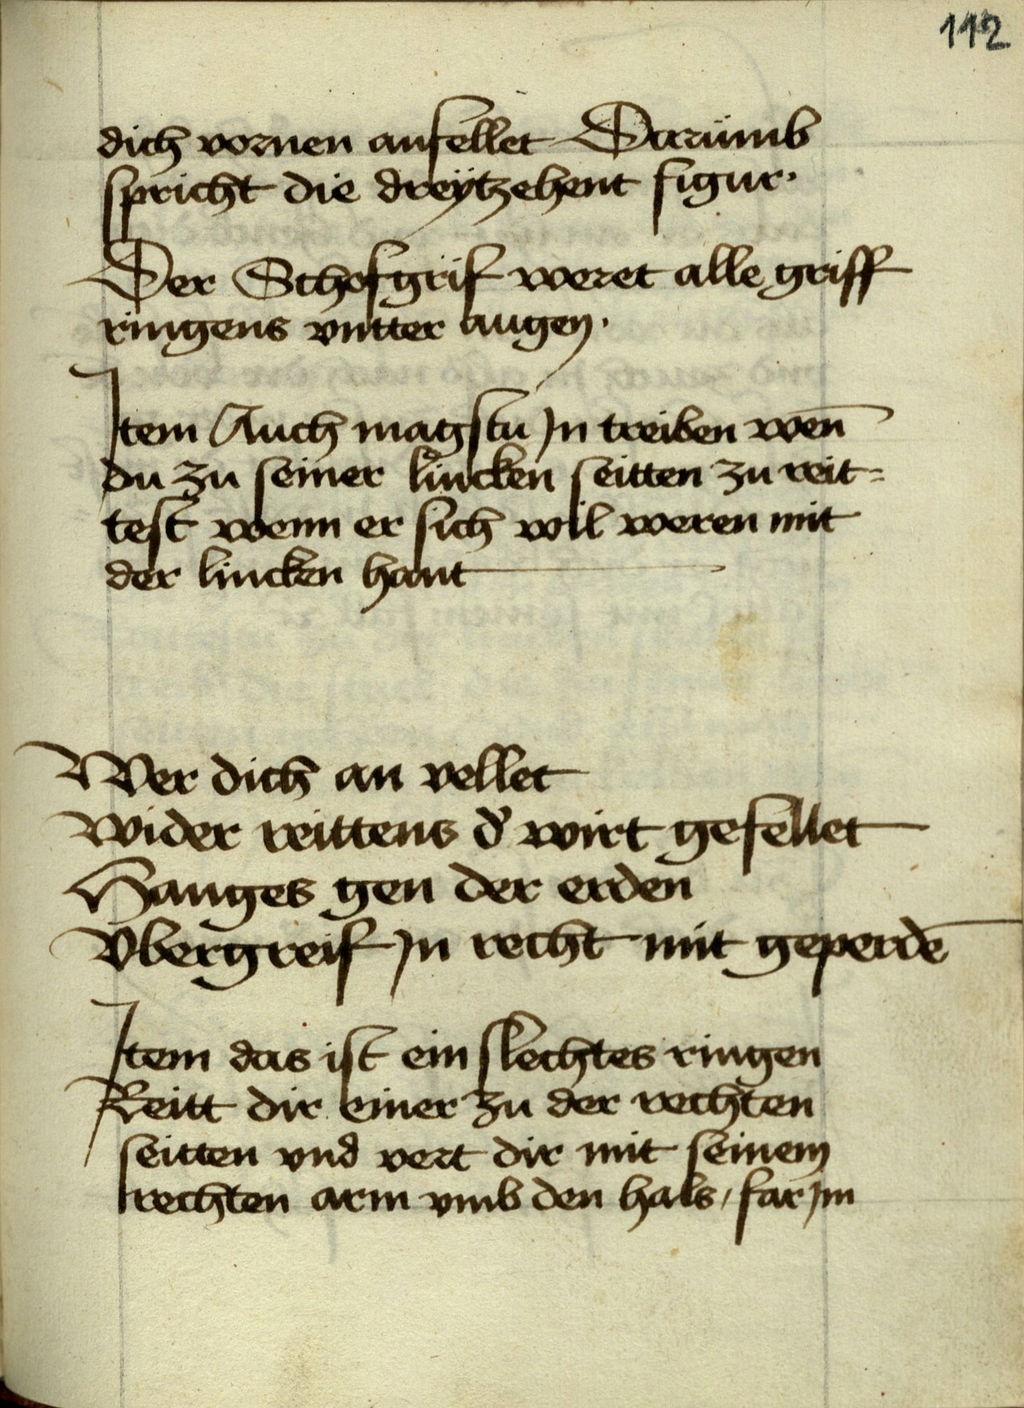 112
dich vornen anfellet Darümb
spricht die dreÿtzehent figur·
Der Schofgrif weret alle griff
ringens vntter augen·
Item Auch magstu In treiben wen̄
du zu seiner lincken seitten zu reit=
test wenn er sich wil weren mit
der lincken hant
Wer dich an vellet
Wider reittens d' wirt gefellet
Hanges gen der erden
Vbergreif In recht mit geperdē
Item das ist ein slechtes ringen
Reitt dir einer zu der rechten
seitten vnd vert dir mit seinem
rechten arm vmb den hals / far Im